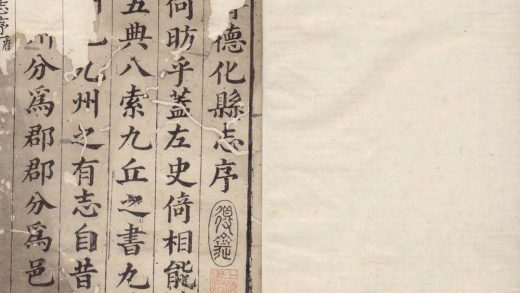 德化縣志序
何昉乎蓋左史倚相能
五典八索九丘之書九
九州之有志自昔
分爲郡郡分爲邑
志序